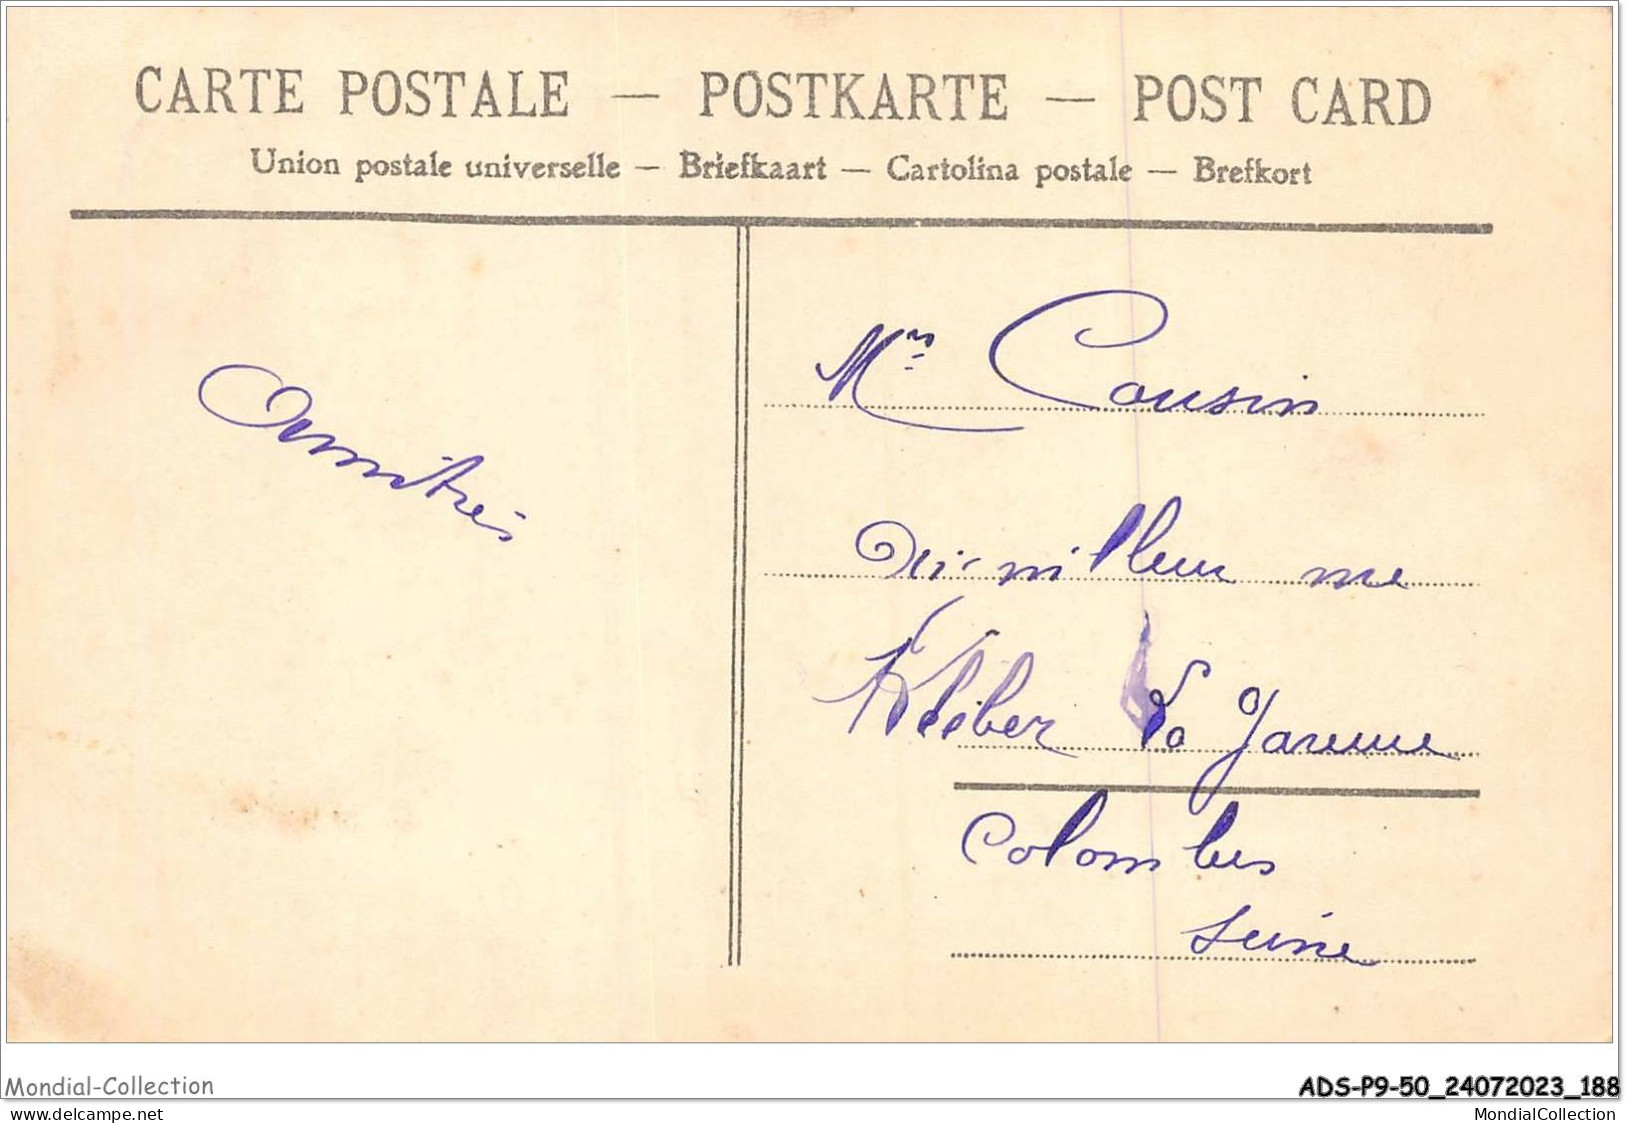 CARTE POSTALE — POSTKARTE — POST CARD
Union postale universelle — Briefkaart — Cartolina postale — Brefkort
Amitiés
Mr Cousin
rue
Kléber La Garenne
Colombes
Seine
Mondial-Collection
ADS-P9-50_24072023_188
www.delcampe.net
MondialCollection